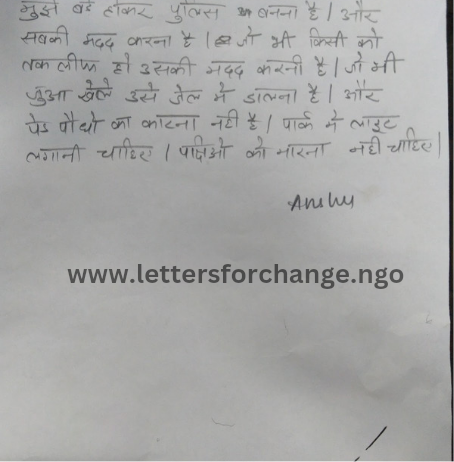 मुझे बड़े होकर पुलिस बनना है। और
सबकी मदद करना है। जो भी किसी को
तकलीफ हो उसकी मदद करनी है। जो भी
जुआ खेले उसे जेल मे डालना है। और
पेड पौधो का काटना नही है। पार्क मे लाइट
लगानी चाहिए। पक्षिओ को मारना नही चाहिए।
Anshu
www.lettersforchange.ngo